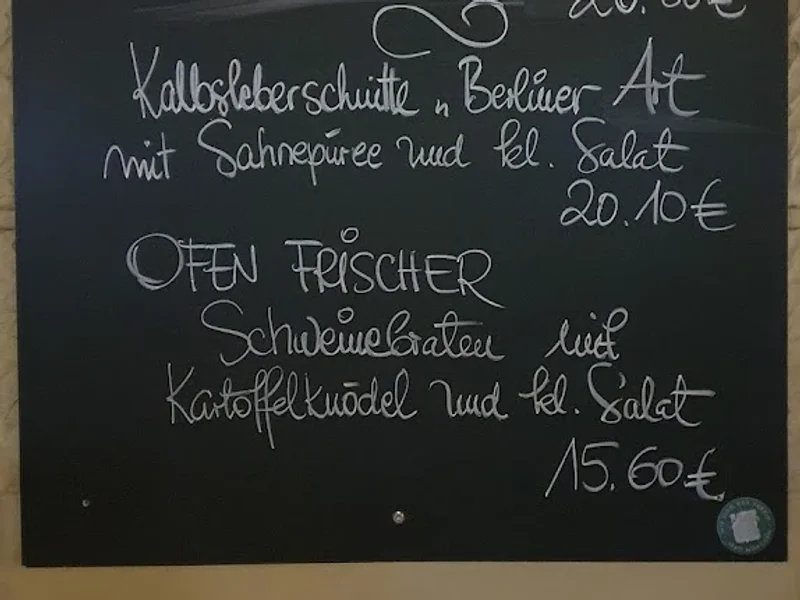 20.60€
Kalbsleberschnitte n. Berliner Art
mit Sahnepüree und kl. Salat
20.10€
OFEN FRISCHER
Schweinebraten mit
Kartoffelknödel und kl. Salat
15.60€